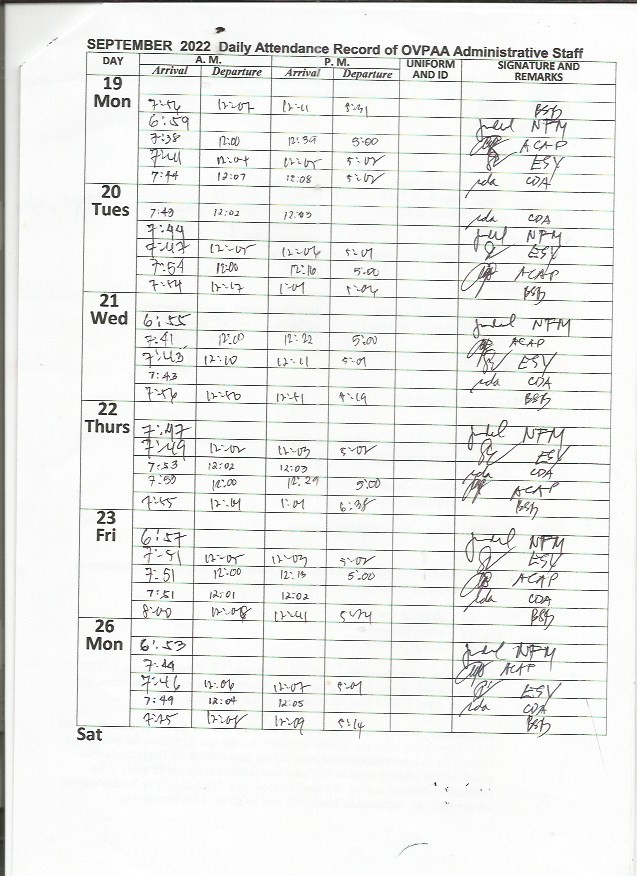 SEPTEMBER 2022 Daily Attendance Record of OVPAA Administrative Staff
DAY A. M. P. M. UNIFORM AND ID SIGNATURE AND REMARKS
Arrival Departure Arrival Departure
19 Mon
7:56 12:07 12:11 BSB
6:59 NFM
7:38 12:00 12:39 5:00 ACAP
7:41 12:04 12:05 5:02 ESY
7:44 12:07 12:08 5:02 CDA
20 Tues
7:43 12:02 12:03 CDA
7:44 NFM
7:47 12:05 12:06 5:01 ESY
7:54 12:00 12:16 5:00 ACAP
12:17 1:01 5:06 BSB
21 Wed
6:55 NFM
7:41 12:00 12:22 5:00 ACAP
7:43 12:10 12:11 5:01 ESY
7:43 CDA
7:56 BSB
22 Thurs
7:47 NFM
7:49 12:02 12:03 5:02 ESY
7:53 12:02 12:03 CDA
12:00 12:29 5:00 ACAP
7:55 12:01 1:01 6:38 BSB
23 Fri
6:57 NFM
12:03 5:02 ESY
7:51 12:00 12:13 5:00 ACAP
7:51 12:01 12:02 CDA
8:00 12:08 BSB
26 Mon
6:53 NFM
7:44 ACAP
7:46 12:06 12:07 5:01 ESY
7:49 12:04 12:05 CDA
12:09 5:14 BSB
Sat